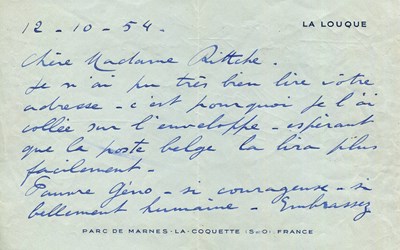 12-10-54.
LA LOUQUE
Chère Madame Rittche.
Je n'ai pu très bien lire vôtre
adresse - c'est pourquoi je l'ai
collée sur l'enveloppe - espérant
que la poste belge la lira plus
facilement -
Pauvre Géno - si courageuse - si
bellement humaine - Embrassez
PARC DE MARNES-LA-COQUETTE (S-O). FRANCE